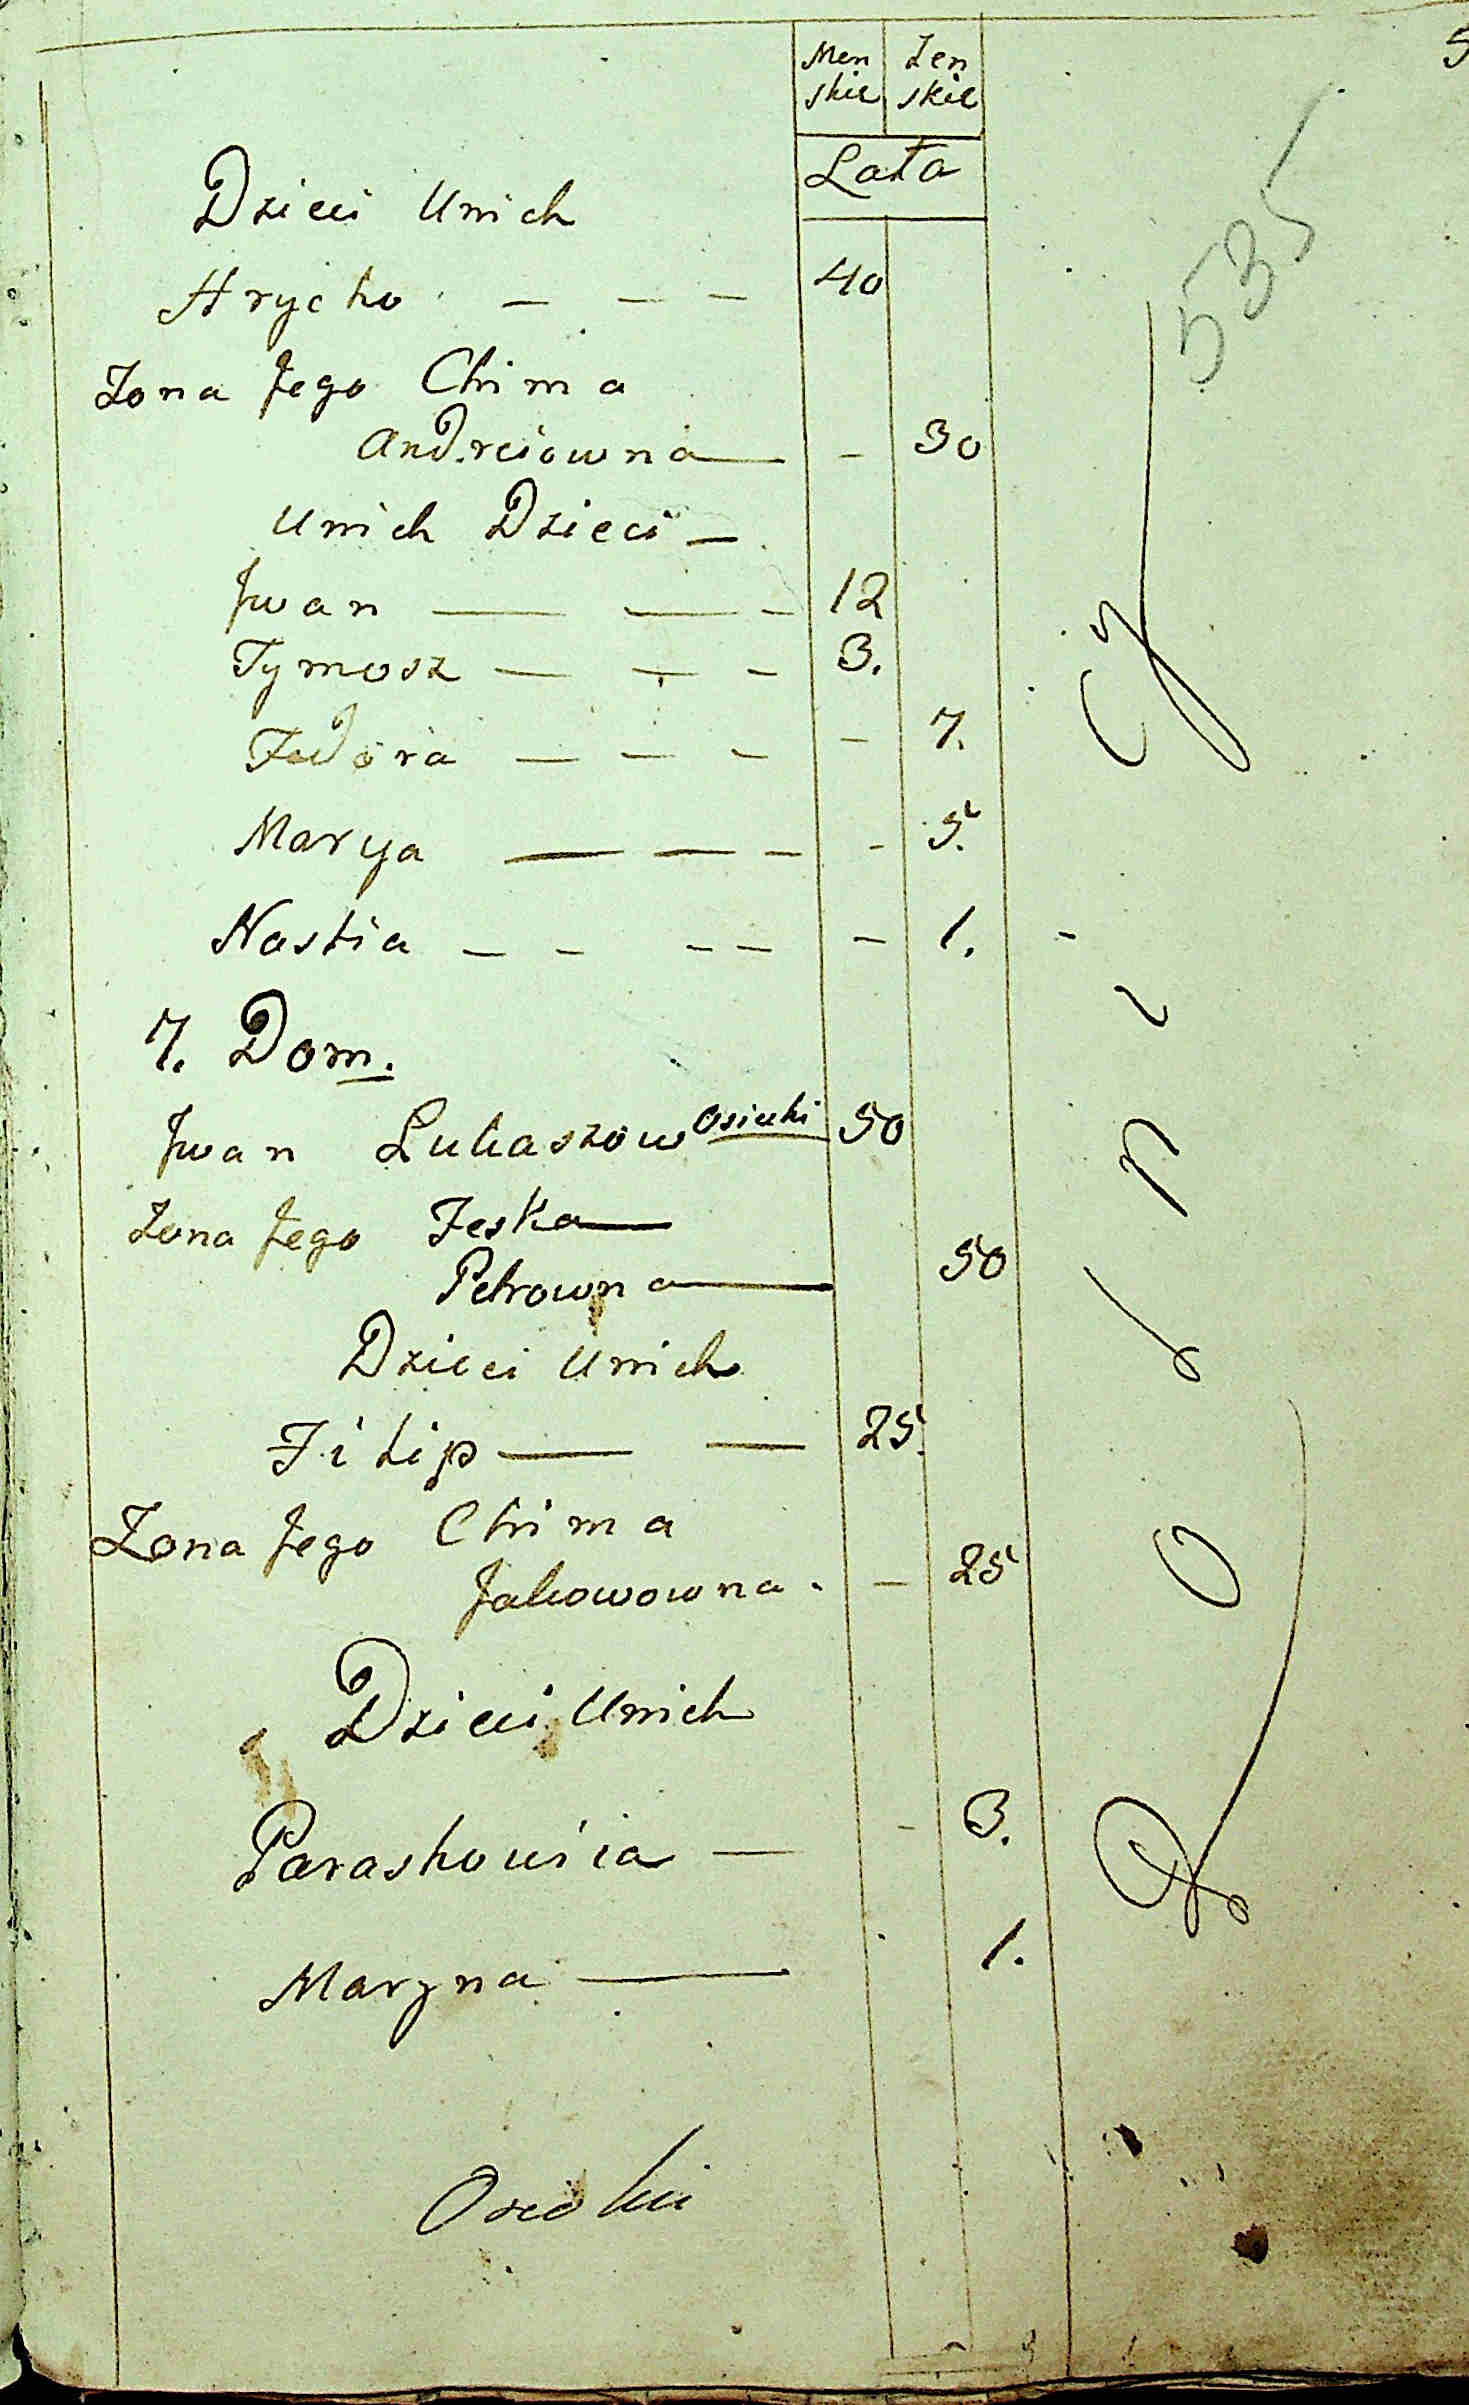 Men Zen
skie skie
Lata
Dzieci Unich
Hrycko — — — 40
Zona Jego Chima
Andreiowna — - 30
Unich Dzieci —
Jwan — — - 12
Tymosz — — - 3.
Fedora — — - - 7.
Marya — — - - 5.
Nastia - - - - - 1. -
7. Dom.
Jwan Lukaszow Osiecki 50
Zona Jego Feska
Petrowna — 50
Dzieci Unich
Filip — — 25.
Zona Jego Chima
Jakowowna. - 25
Dzieci Unich
Paraskowia — - 3.
Maryna — 1.
535